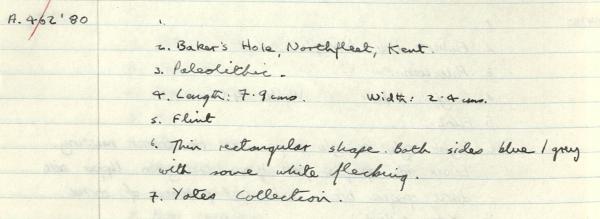 A. 462'80
1.
2. Baker's Hole, Northfleet, Kent.
3. Paleolithic.
4. Length: 7.9 cms. Width: 2.4 cms.
5. Flint
6. Thin rectangular shape. Both sides blue/grey
with some white flecking.
7. Yates Collection.